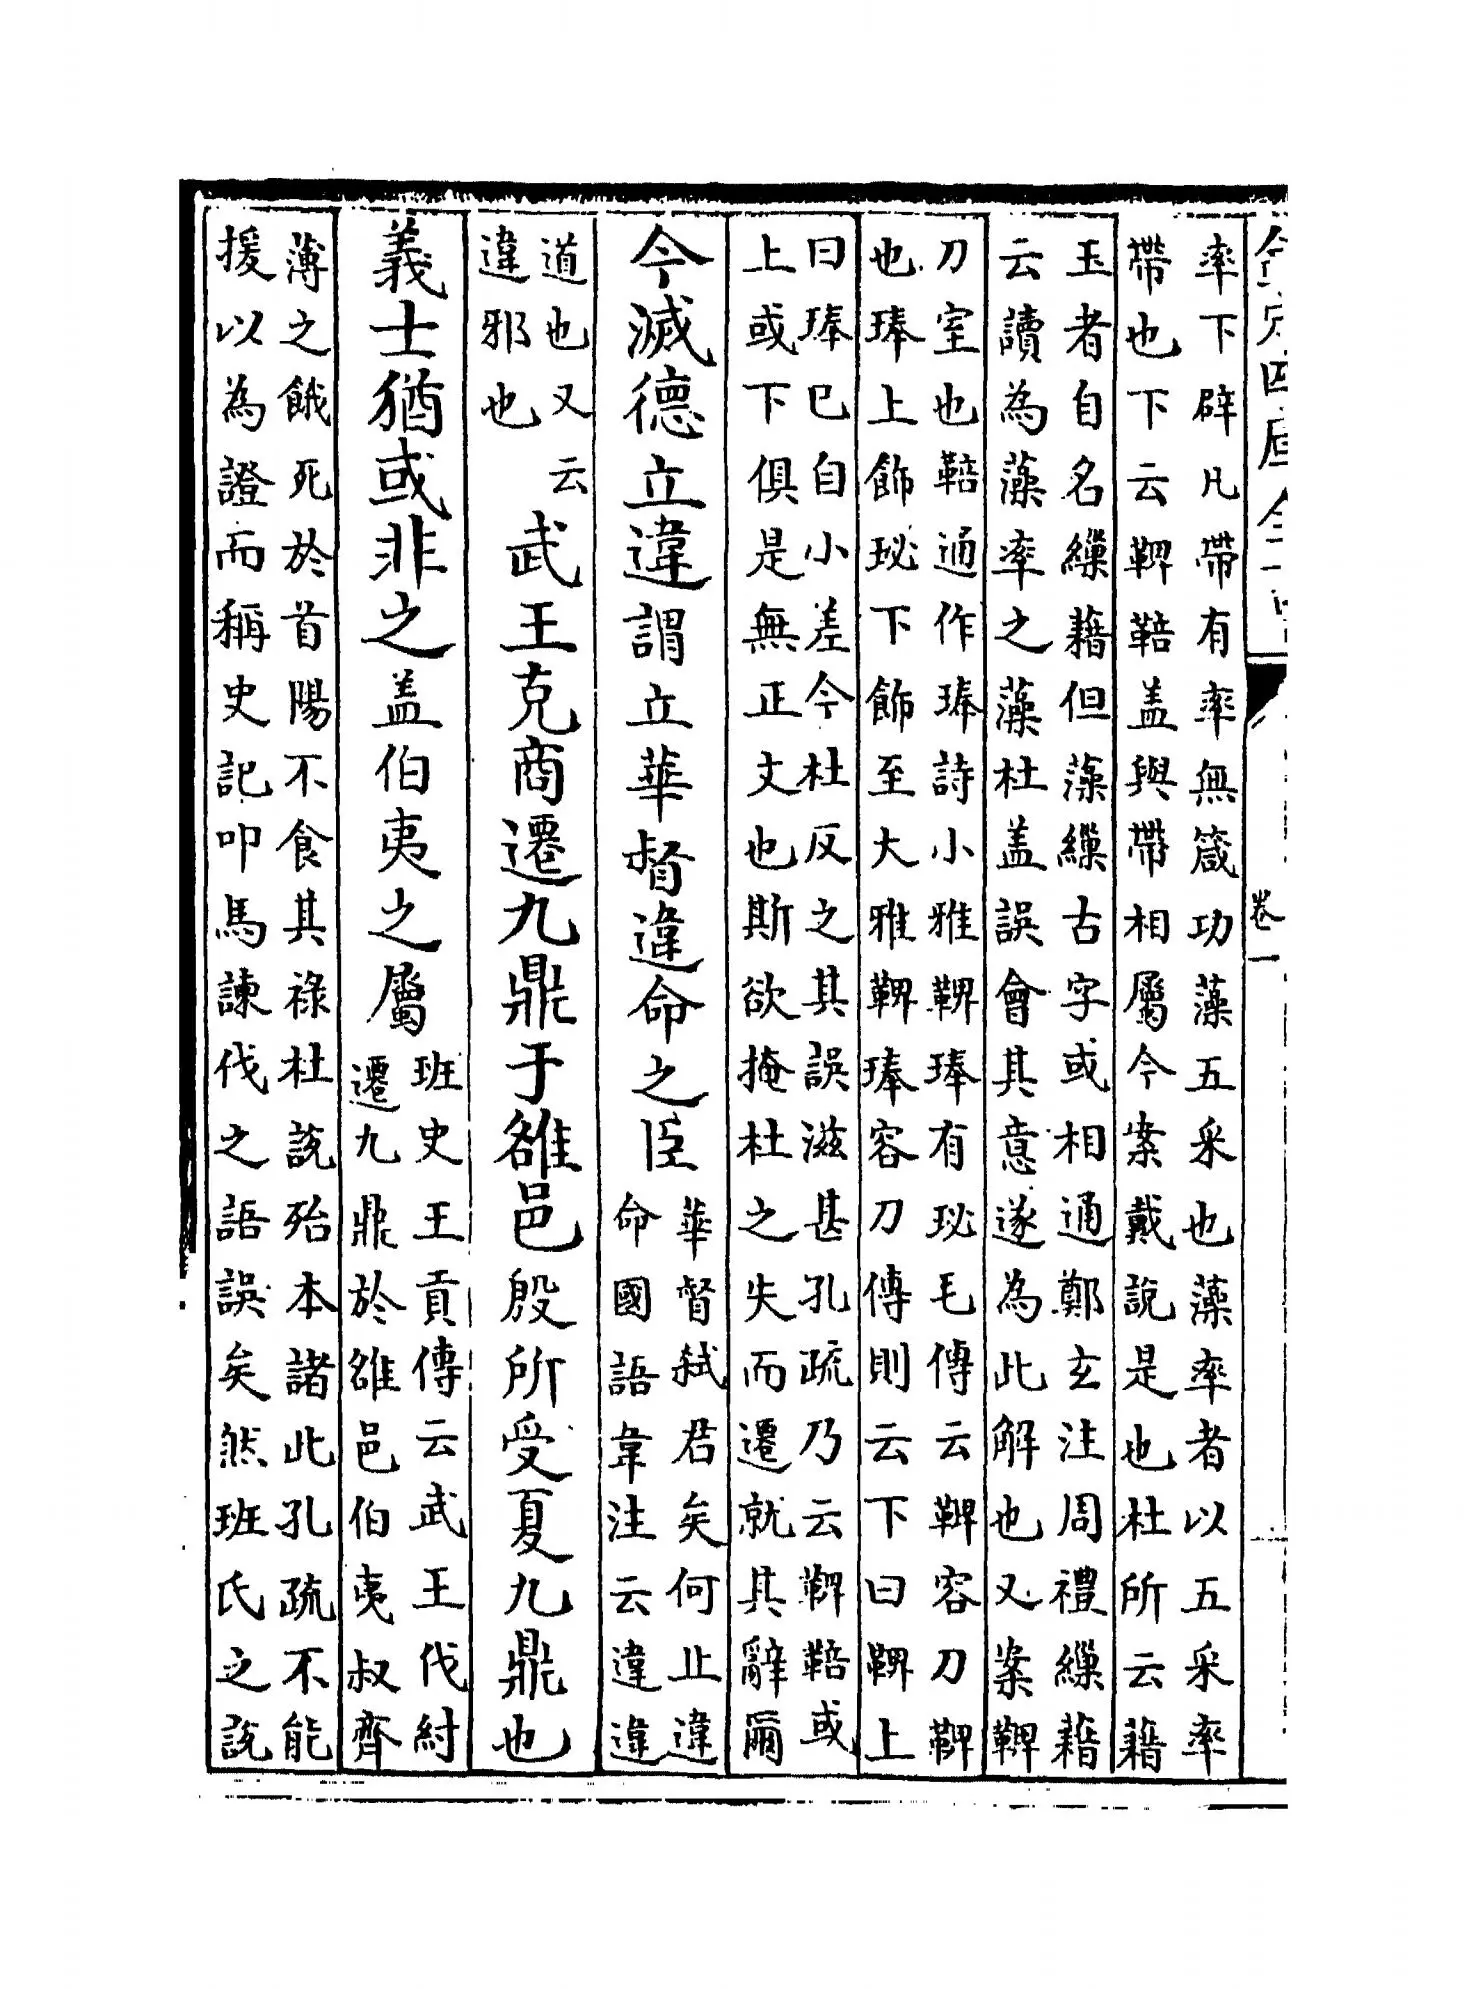 欽定四庫全書
卷一
率下辟凡帶有率無箴功藻五采也藻率者以五采率
帶也下云鞞鞛盖與帶相屬今案戴説是也杜所云藉
玉者自名繅藉但藻繅古字或相通鄭玄注周禮繅藉
云讀為藻率之藻杜盖誤會其意遂為此解也又案鞞
刀室也鞛通作琫詩小雅鞞琫有珌毛傳云鞞容刀鞞
也琫上飾珌下飾至大雅鞞琫容刀傳則云下曰鞞上
曰琫已自小差今杜反之其誤滋甚孔疏乃云鞞鞛或
上或下俱是無正文也斯欲掩杜之失而遷就其辭爾
今滅德立違謂立華督違命之臣
華督弑君矣何止違
命國語韋注云違違
道也又云
違邪也
武王克商遷九鼎于雒邑殷所受夏九鼎也
義士猶或非之盖伯夷之屬
班史王貢傳云武王伐紂
遷九鼎於雒邑伯夷叔齊
薄之餓死於首陽不食其祿杜説殆本諸此孔疏不能
援以為證而稱史記叩馬諫伐之語誤矣然班氏之説